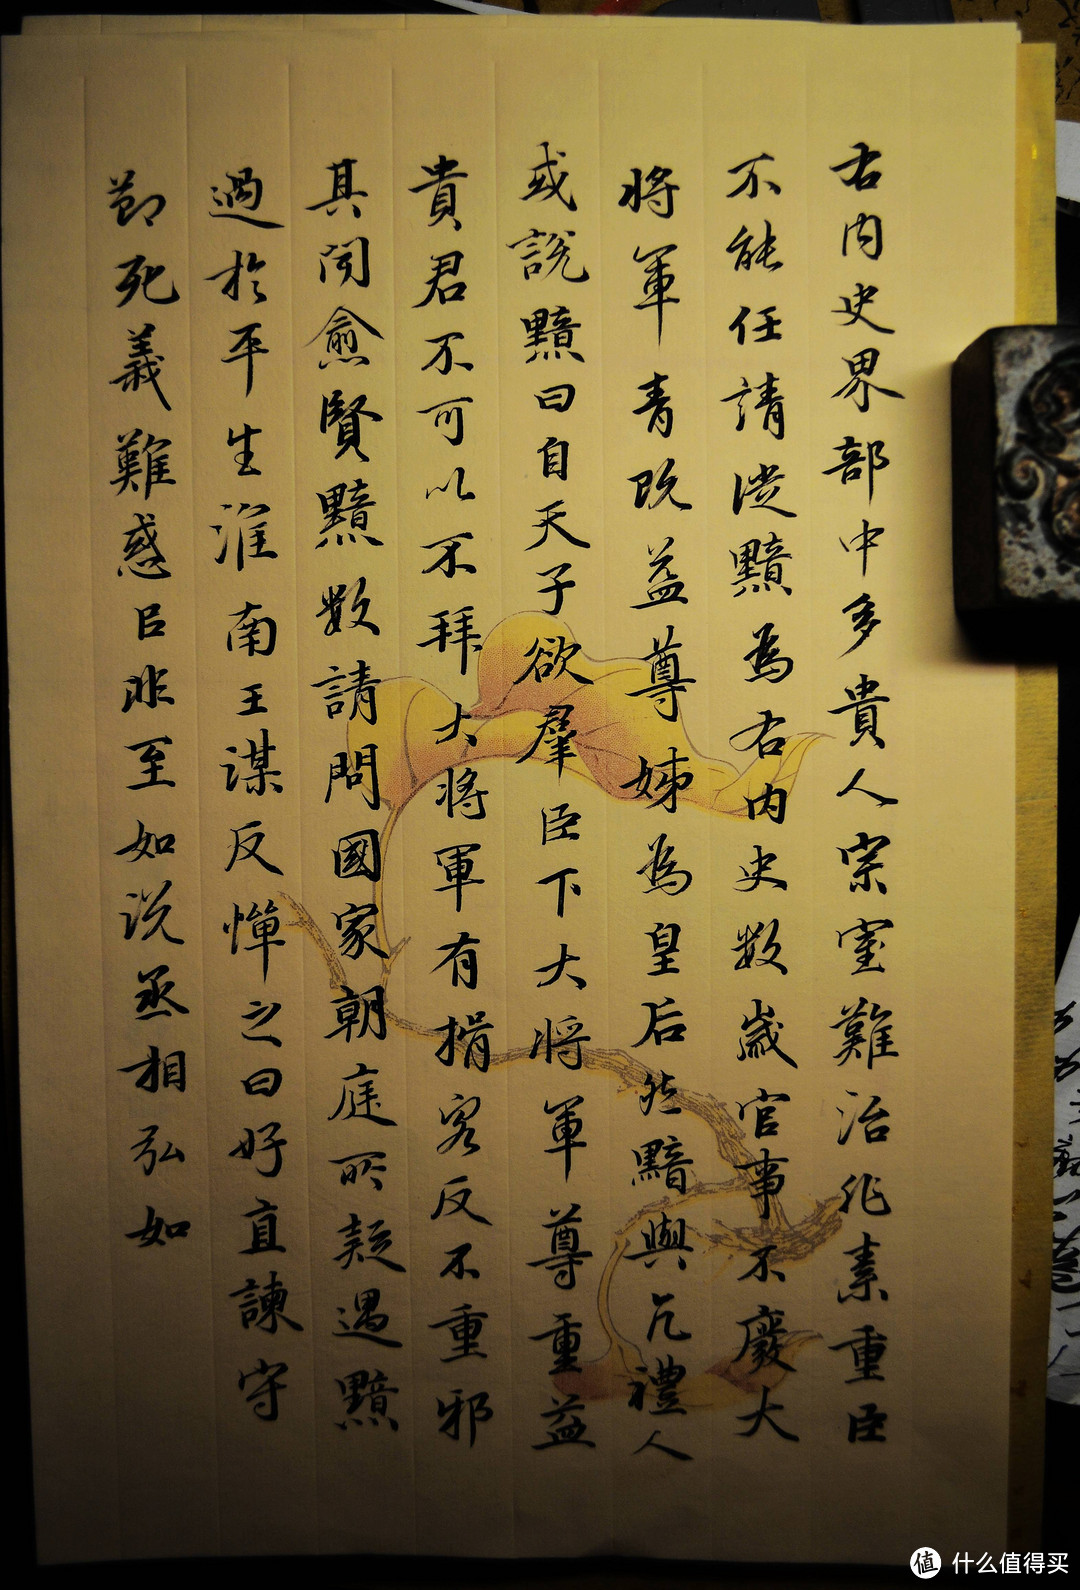 右内史界部中多貴人宗室難治非素重臣
不能任請徙黯為右内史数歲官事不廢大
将軍青既益尊姊為皇后然黯與亢禮人
或說黯曰自天子欲羣臣下大将軍尊重益
貴君不可以不拜大将軍有揖客反不重邪
其聞愈賢黯数請問國家朝庭所疑遇黯
過於平生淮南王謀反憚之曰好直諫守
節死義難惑㠯非至如說丞相弘如
值 什么值得买